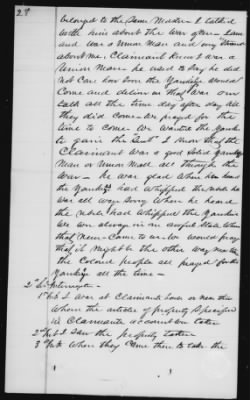 28
belonged to the same Master I talked
with him about the war often - Sam
and was a Union Man and any
about me, Claimant knew I was a
Union Man - he used to say he did
not care how soon the Yankees would
come and deliver us that was our
talk all the time day after day till
they did come - We prayed for the
time to come - We wanted the Yanks
to gain the I know that the
Claimant was a good
Man or Union Man all through the
war - he was glad when he heard
the Yankees had Whipped the rebels he
was all ways Sorry when he heard
the rebels had Whipped the Yankees
we were always in an awful State when
that News Came to us - we would pray
that it might be the other way
the Colored people all prayed for the
Yankees all the time -
2nd Interrogate -
1st I was at Claimants house or near there
When the articles of property Specified
in Claimants account were taken
2nd I Saw the property taken
3rd When they Came then to take the